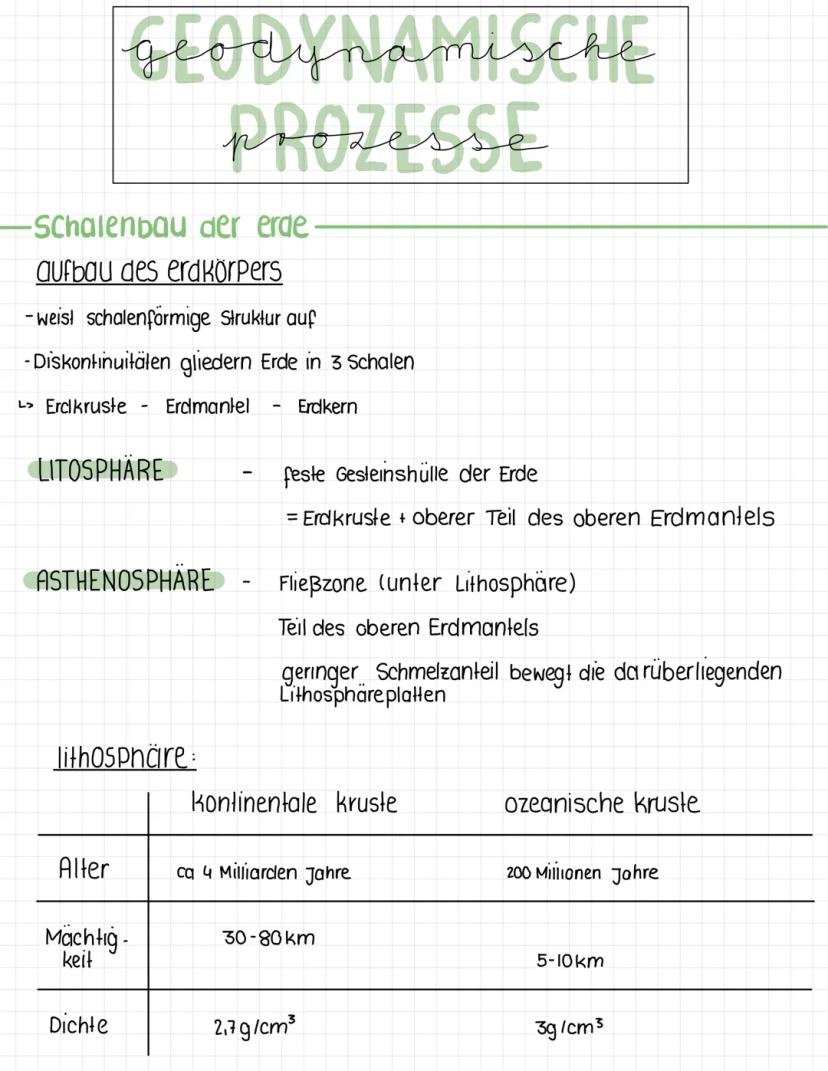 GEODYNAMISCHE
geodynamische
PROZESSE
prozesse
Schalenbau der erde
aufbau des erdkörpers
- weist schalenförmige Struktur auf
- Diskontinuitäten gliedern Erde in 3 Schalen
↳ Erdkruste - Erdmantel - Erdkern
LITOSPHÄRE - feste Gesteinshülle der Erde
= Erdkruste + oberer Teil des oberen Erdmantels
ASTHENOSPHÄRE - Fließzone (unter Lithosphäre)
Teil des oberen Erdmantels
geringer Schmelzanteil bewegt die darüberliegenden
Lithosphäreplatten
lithosphäre:
kontinentale kruste ozeanische kruste
Alter ca 4 Milliarden Jahre 200 Millionen Jahre
Mächtig- 30-80km
keit 5-10km
Dichte 2,7g/cm³ 3g/cm³